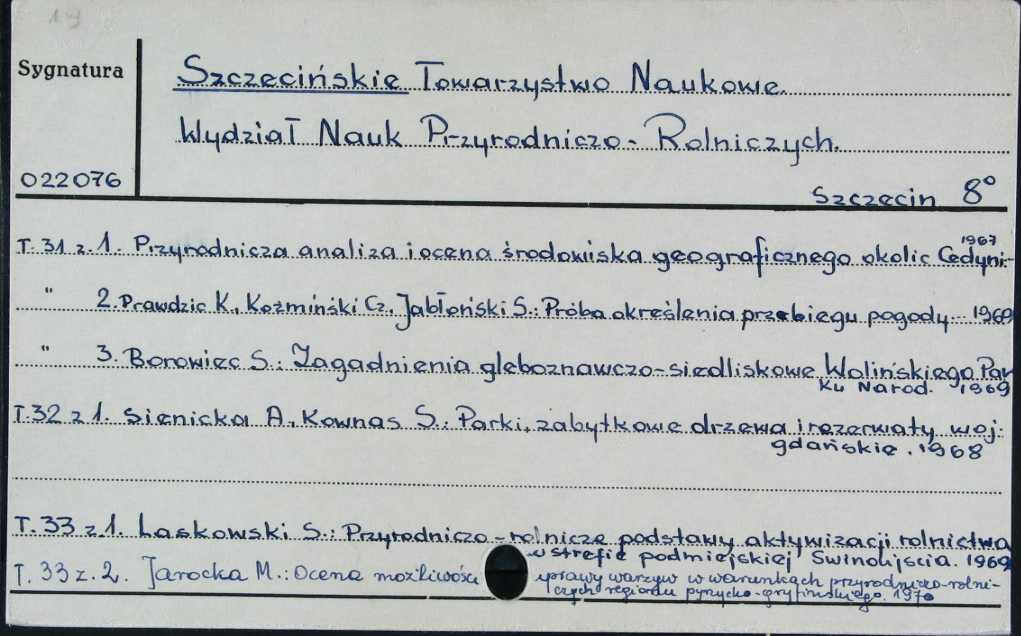 19
Sygnatura
Szczecińskie Towarzystwo Naukowe.
Wydział Nauk Przyrodniczo-Rolniczych.
022076
Szczecin 8°
T. 31 z. 1. Przyrodnicza analiza i ocena środowiska geograficznego okolic Cedyni.- 1967
" 2. Prawdzic K., Koźmiński Cz., Jabłoński S.: Próba określenia przebiegu pogody... 1969
" 3. Borowiec S.: Zagadnienia gleboznawczo-siedliskowe Wolińskiego Par
ku Narod. 1969
T. 32 z 1. Sienicka A., Kownas S.: Parki, zabytkowe drzewa i rezerwaty woj.
gdańskie. 1968
T. 33 z. 1. Laskowski S.: Przyrodniczo-rolnicze podstawy aktywizacji rolnictwa
w strefie podmiejskiej Świnoujścia. 1969
T. 33 z. 2. Jarocka M.: Ocena możliwości uprawy warzyw w warunkach przyrodniczo-rolni-
czych regionu pyrzycko-gryfińskiego. 1970